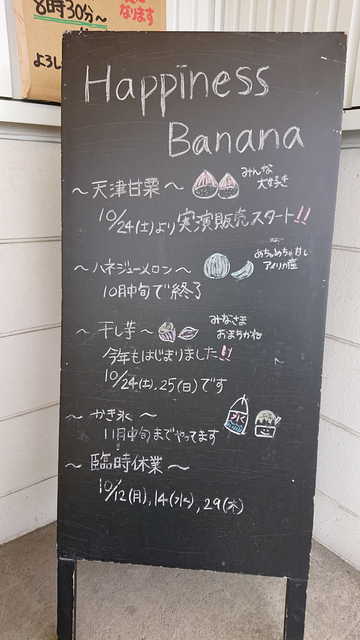 8時30分～
なります
よろし
Happiness
Banana
～天津甘栗～
みんな
大好き
10/24(土)より実演販売スタート!!
～ハネジューメロン～
めちゃめちゃ甘い
アメリカ産
10月中旬で終了
～干し芋～
みなさま
おまちかね
今年もはじまりました!!
10/24(土),25(日)です
～かき氷～
氷
11月中旬までやってます
～臨時休業～
10/12(月),14(水),29(木)